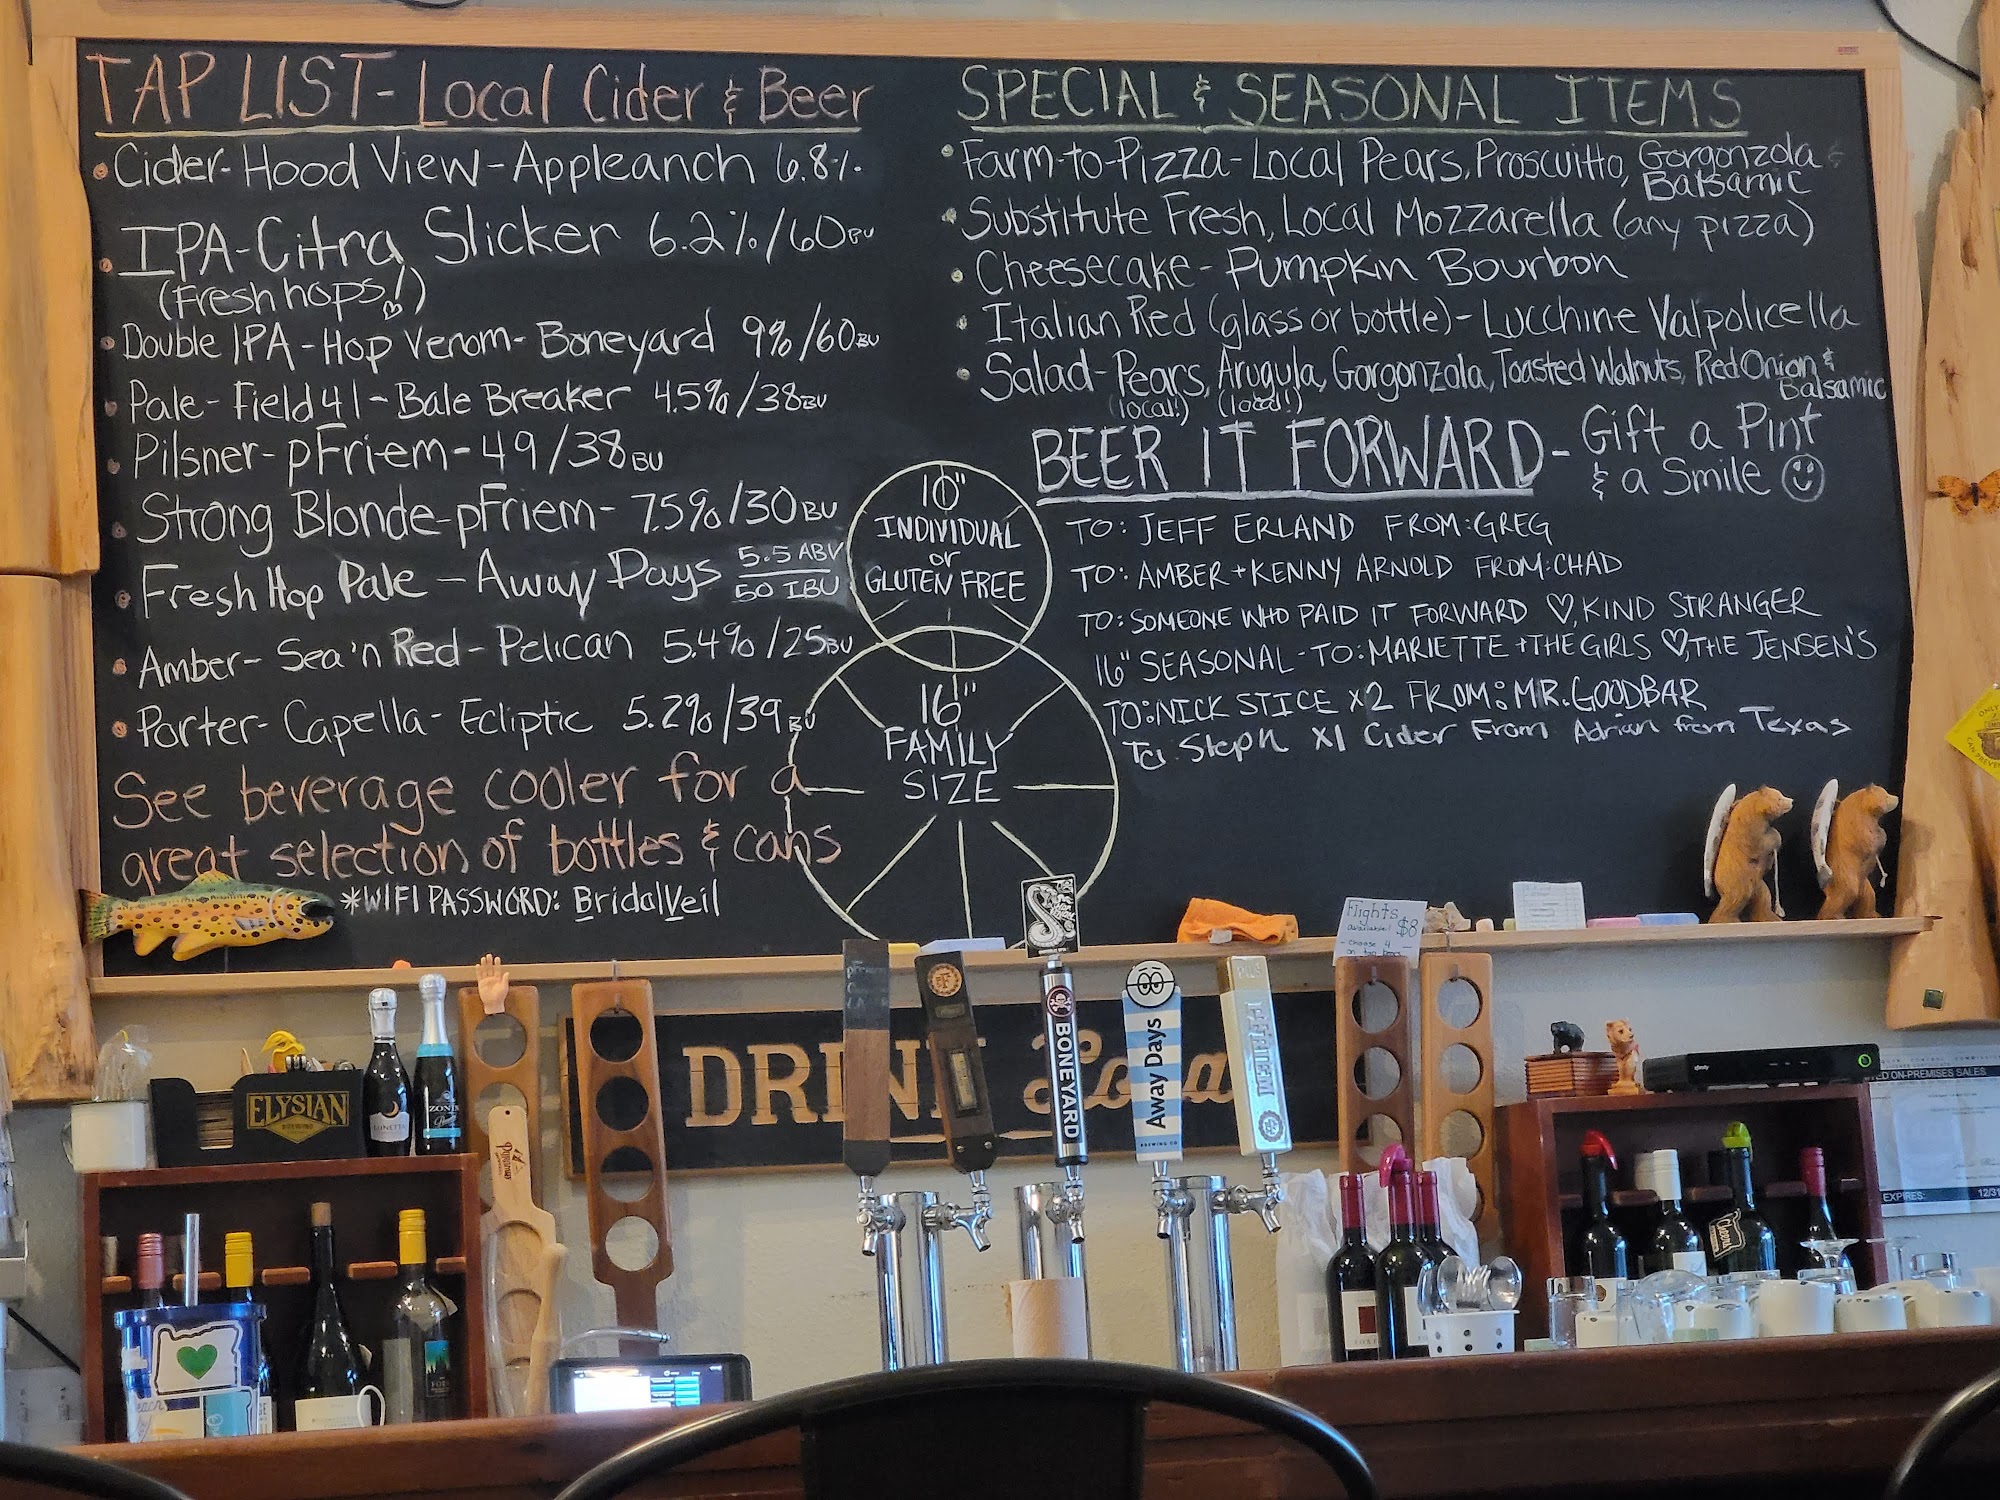 TAP LIST- Local Cider & Beer
• Cider- Hood View - Appleanch 6.8%
• IPA-Citra Slicker 6.2%/60BU
(Fresh hops!)
• Double IPA - Hop Venom- Boneyard 9%/60BU
• Pale- Field 41 - Bale Breaker 4.5%/38BU
• Pilsner- pFriem- 49/38BU
• Strong Blonde-pFriem- 7.5%/30BU
• Fresh Hop Pale - Away Days 5.5 ABV
50 IBU
• Amber- Sea'n Red- Pelican 5.4%/25BU
• Porter- Capella- Ecliptic 5.2%/39BU
See beverage cooler for a
great selection of bottles & cans
*WIFI PASSWORD: BridalVeil
10"
INDIVIDUAL
or
GLUTEN FREE
16"
FAMILY
SIZE
SPECIAL & SEASONAL ITEMS
• Farm-to-Pizza- Local Pears, Proscuitto, Gorgonzola &
Balsamic
• Substitute Fresh, Local Mozzarella (any pizza)
• Cheesecake- Pumpkin Bourbon
• Italian Red (glass or bottle)- Lucchine Valpolicella
• Salad- Pears, Arugula, Gorgonzola, Toasted Walnuts, Red Onion &
(local!) (local!) Balsamic
BEER IT FORWARD- Gift a Pint
& a Smile
TO: JEFF ERLAND FROM: GREG
TO: AMBER + KENNY ARNOLD FROM: CHAD
TO: SOMEONE WHO PAID IT FORWARD ♡, KIND STRANGER
16" SEASONAL - TO: MARIETTE + THE GIRLS ♡, THE JENSEN'S
TO: NICK STICE X2 FROM: MR. GOODBAR
To: Steph X1 Cider From Adrian from Texas
Flights
available! $8
- choose 4
on tap beer
ELYSIAN
BREWING
DRINK Local
BONEYARD
Away Days
BREWING CO
PFRIEM
PILS
xfinity
ON-PREMISES SALES
EXPIRES: 12/31
ONLY